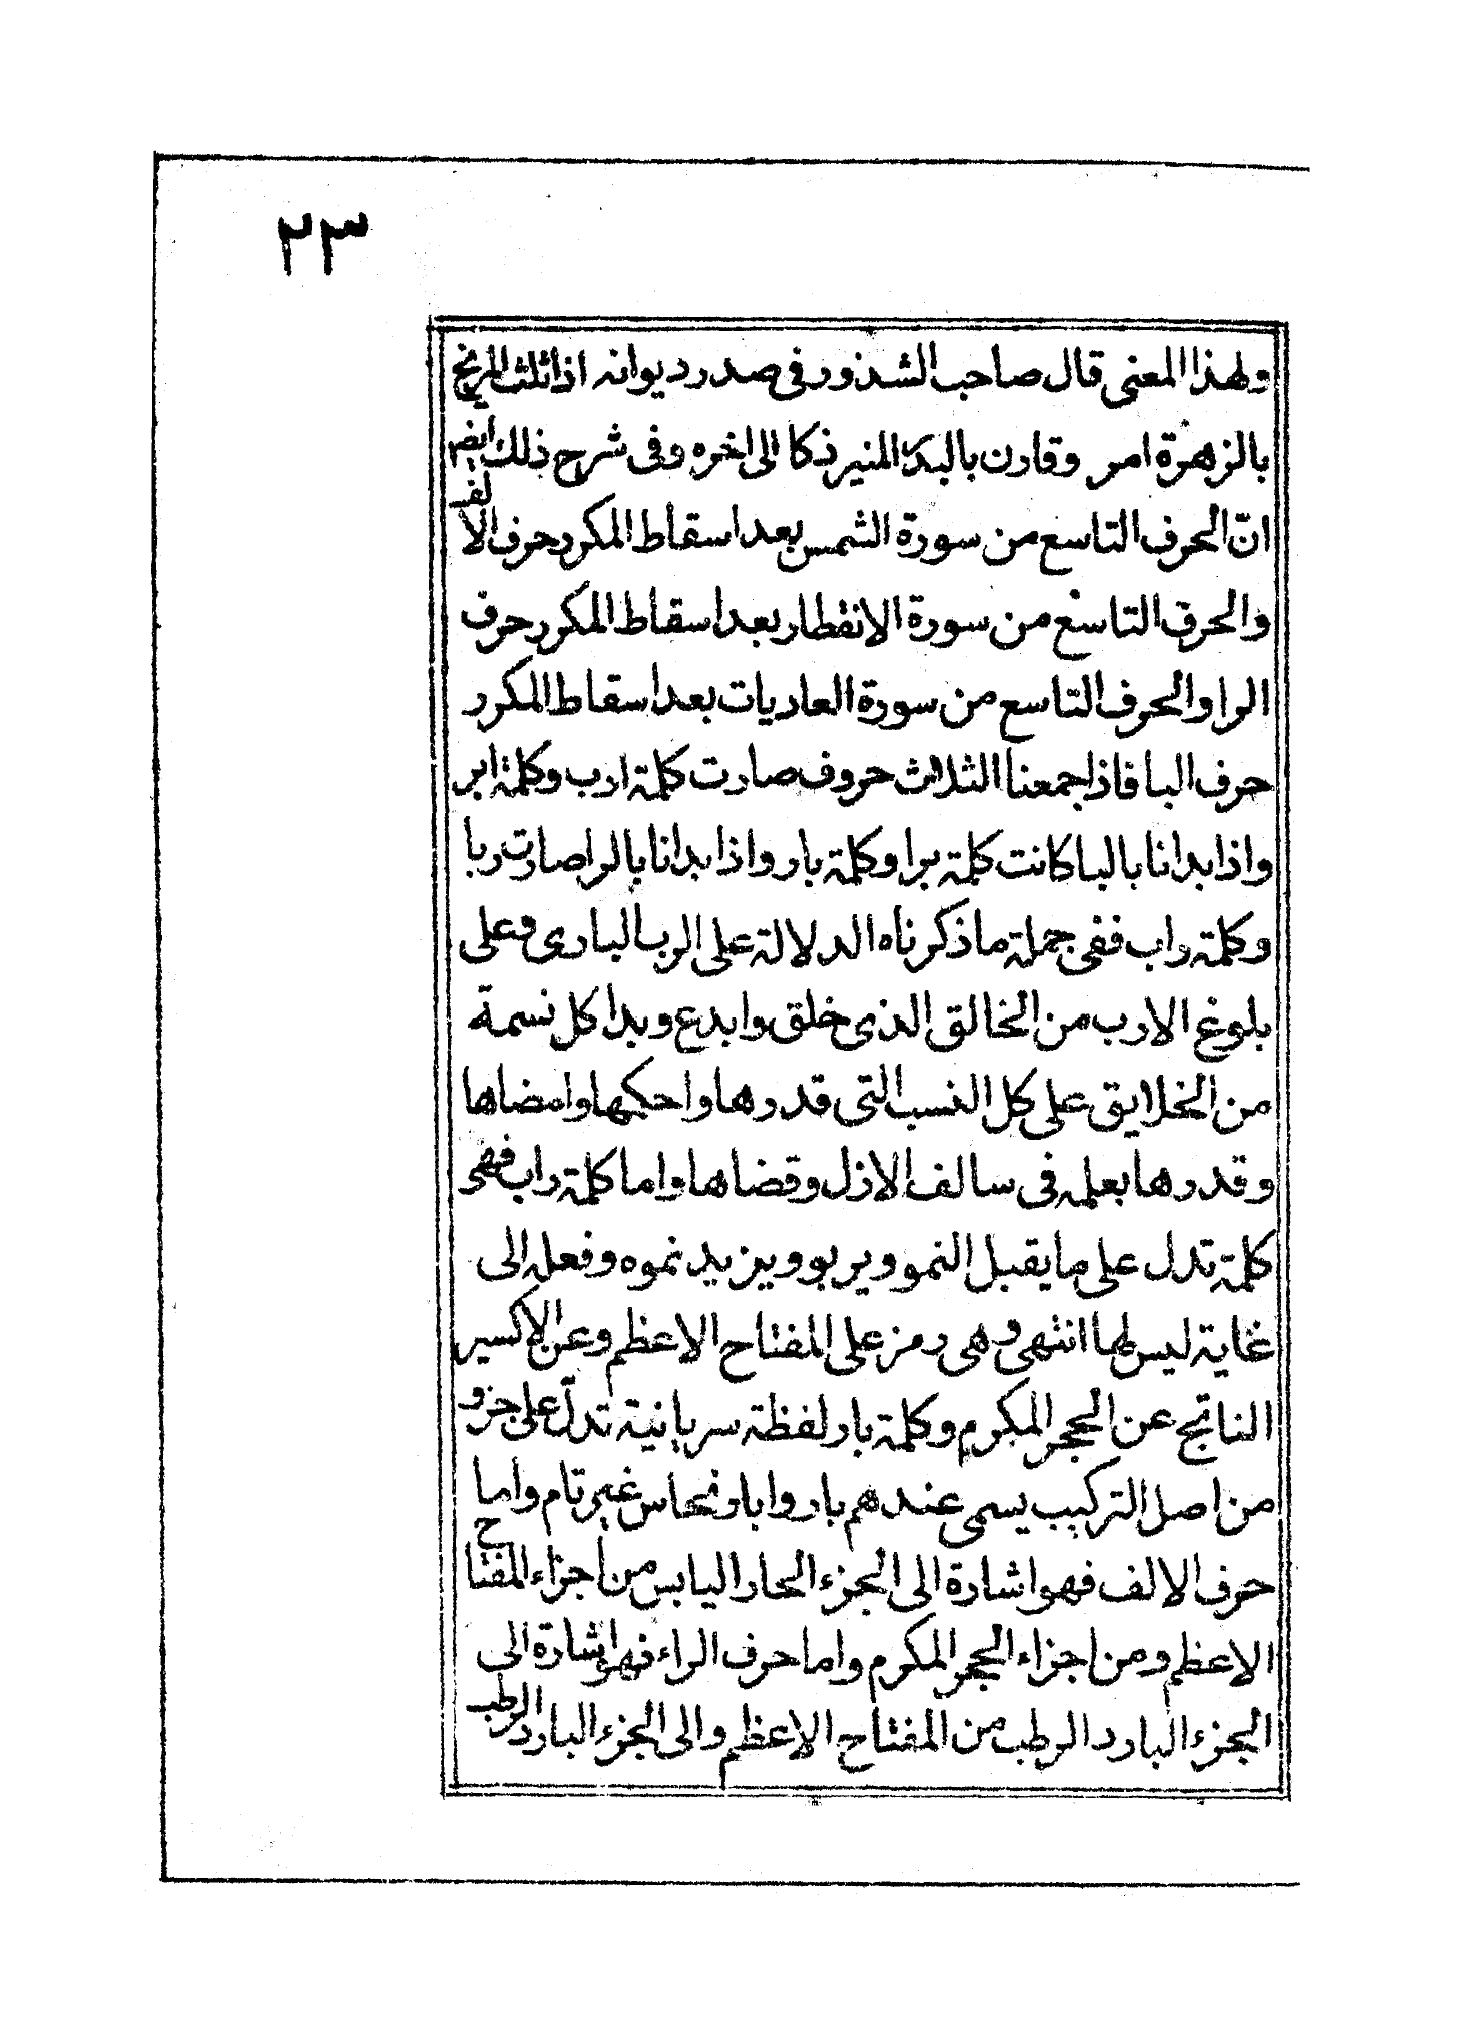 ٢٣
ولهذا المعنى قال صاحب الشذور فى صدر ديوانه اذا ثلث المريخ
بالزهرة امر وقارن بالبدر المنير ذكا الى اخره وفى شرح ذلك ايض
انّ الحرف التاسع من سورة الشمس بعد اسقاط المكرر حرف الالف
والحرف التاسع من سورة الانفطار بعد اسقاط المكرر حرف
الرا والحرف التاسع من سورة العاديات بعد اسقاط المكرر
حرف البا فاذا جمعنا الثلاث حروف صارت كلمة ارب وكلمة ابر
واذا بدانا بالبا كانت كلمة برا وكلمة بار واذا بدانا بالرا صارت ربا
وكلمة راب ففى جملة ما ذكرناه الدلالة على الرب البارى وعلى
بلوغ الارب من الخالق الذى خلق وابدع وبدا كل نسمة
من الخلايق على كل النسب التى قدرها واحكمها وامضاها
وقدرها بعلمه فى سالف الازل وقضاها واما كلمة راب فهى
كلمة تدل على ما يقبل النمو ويربو ويزيد نموه وفعله الى
غاية ليس لها انتهى وهى رمز على المفتاح الاعظم وعن الاكسير
الناتج عن الحجر المكرم وكلمة بار لفظة سريانية تدل على جزو
من اصل التركيب يسمى عندهم بار وابار ونحاس غير تام واما
حرف الالف فهو اشارة الى الجزء الحار اليابس من اجزاء المفتاح
الاعظم ومن اجزاء الحجر المكرم واما حرف الراء فهو اشارة الى
الجزء البارد الرطب من المفتاح الاعظم والى الجزء البارد الرطب